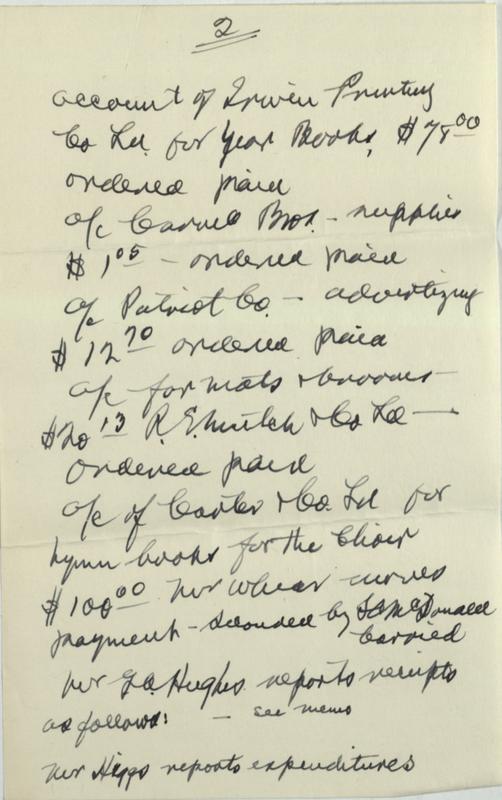 2
account of Irwin Printing
Co Ltd. for Year Books, $78.00
ordered paid
a/c Carvell Bros. - supplies
$1.05 - ordered paid
a/c Patriot Co. - advertizing
$12.70 ordered paid
a/c for mats & brooms -
$20.13 R.E. Mutch & Co Ltd -
ordered paid
a/c of Carter & Co. Ltd for
hymn books for the Choir
$100.00 Mr moves
payment - seconded by McDonald
Carried
Mr Hughes reports receipts
as follows: - see memo
Mr Higgs reports expenditures